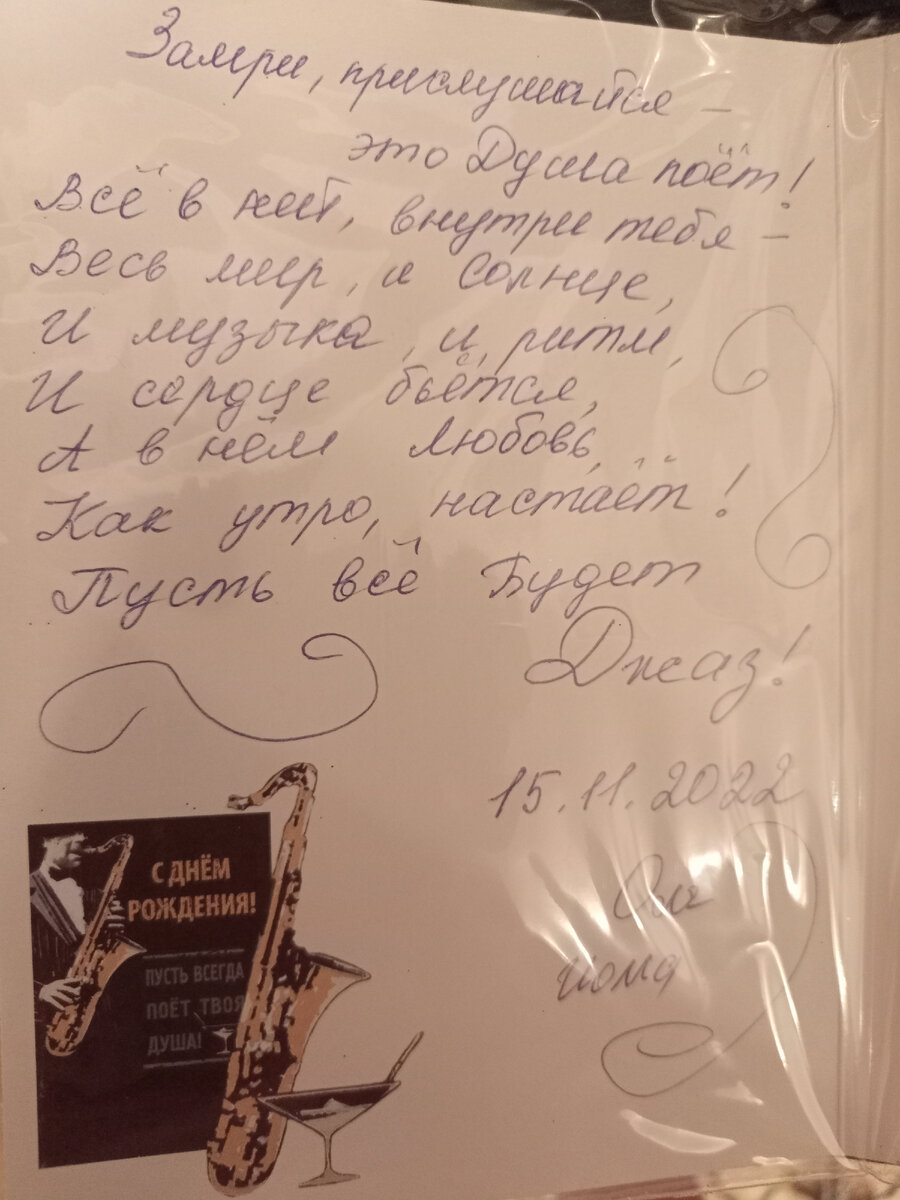 Замри, прислушайся –
это Душа поёт!
Всё в ней, внутри тебя –
Весь мир, и Солнце,
И музыка, и ритм,
И сердце бьётся,
А в нём Любовь,
Как утро, настаёт!
Пусть всё Будет
Джаз!
15.11.2022
С ДНЁМ
РОЖДЕНИЯ!
ПУСТЬ ВСЕГДА
ПОЁТ ТВОЯ
ДУША!